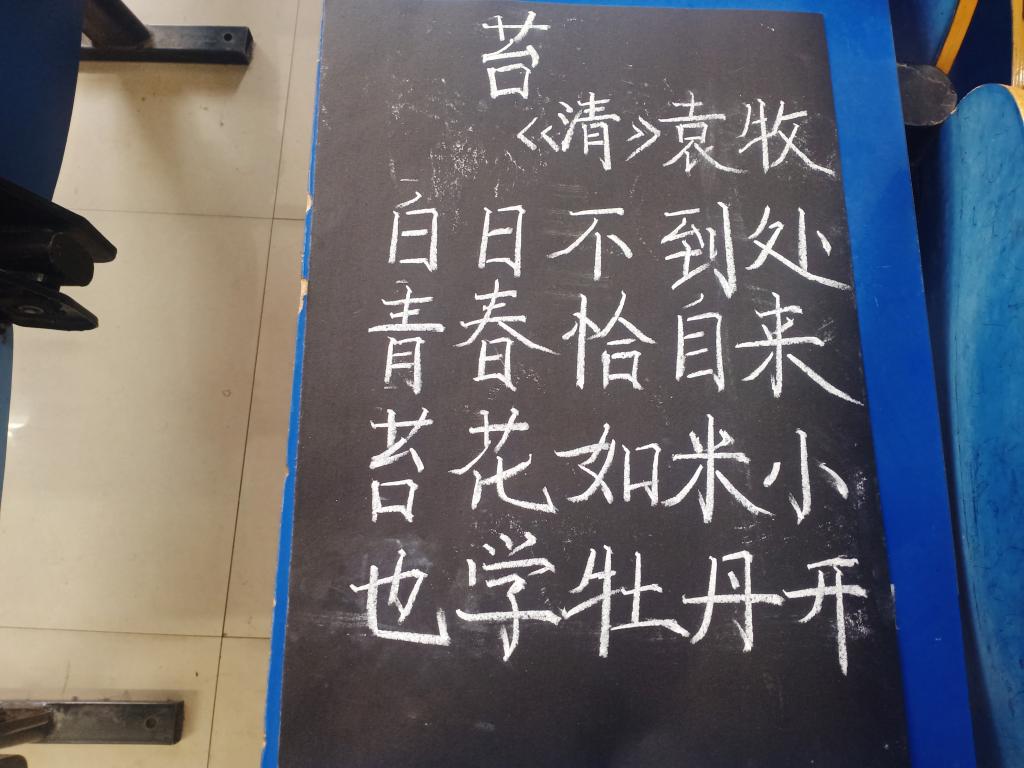 苔
《清》袁牧
白日不到处
青春恰自来
苔花如米小
也学牡丹开